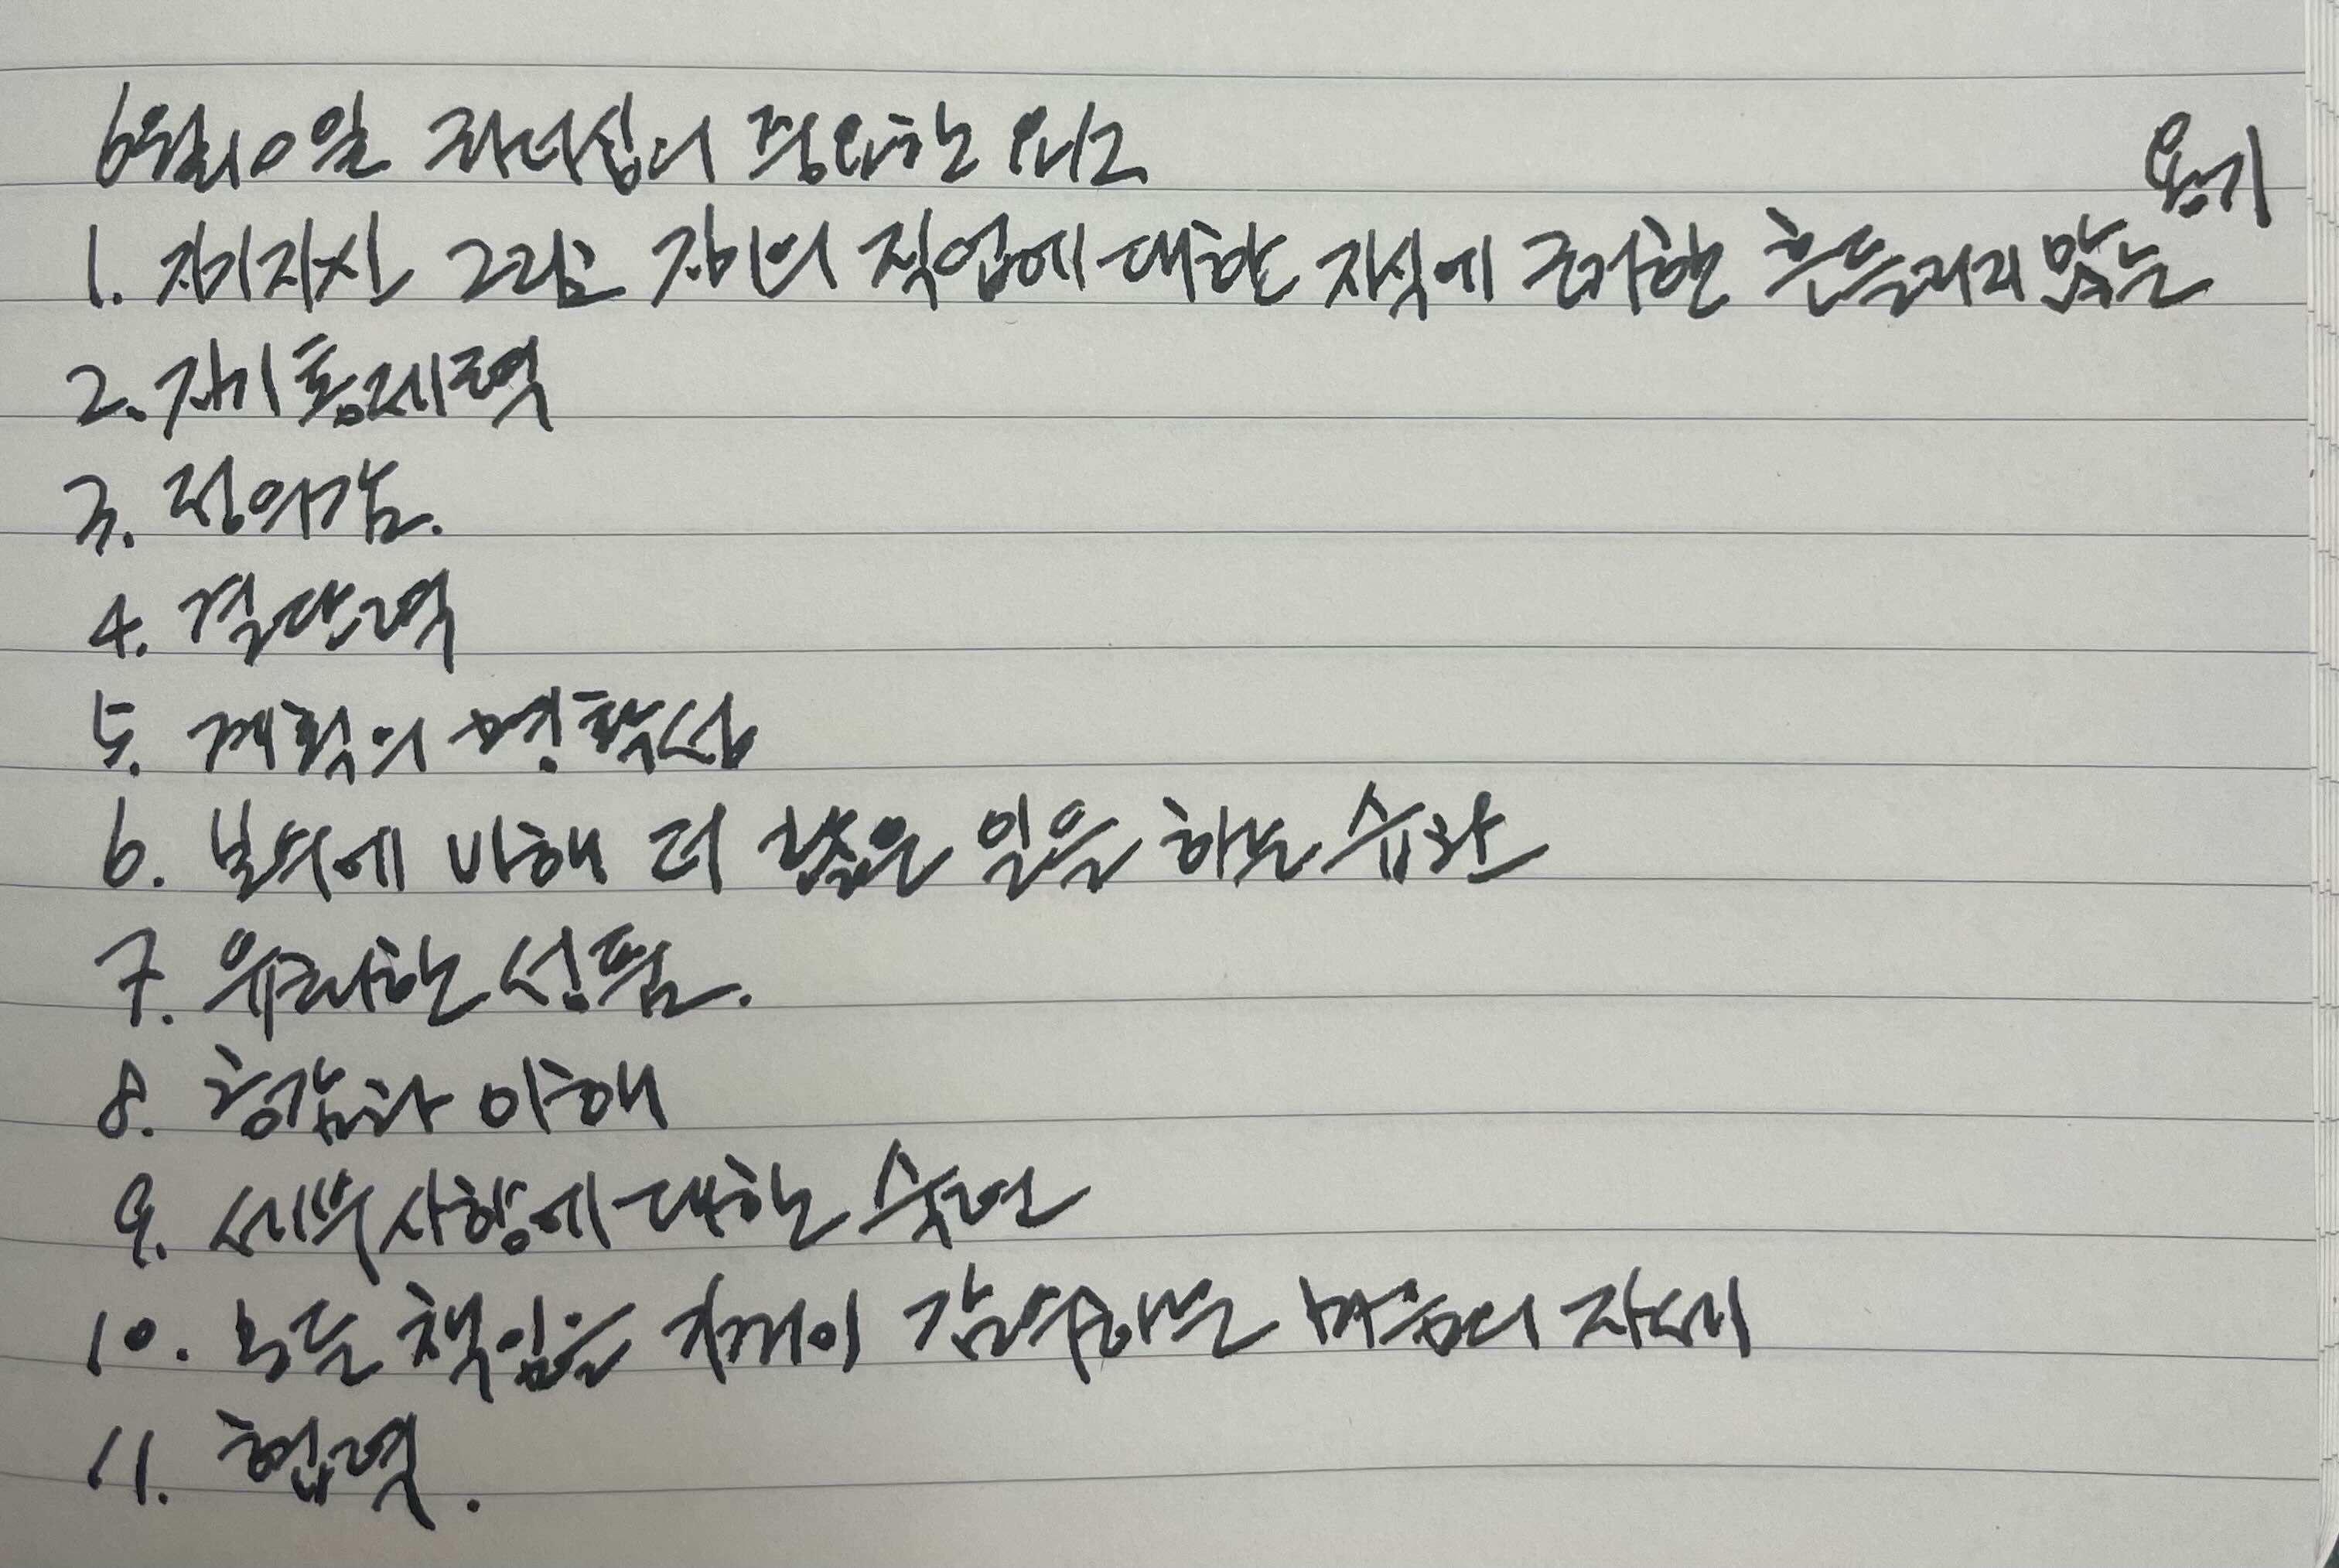 6월10일 리더십의 중요한 요소
1. 자기자신 그리고 자기의 직업에 대한 지식에 근거한 흔들리지 않는 용기
2. 자기통제력
3. 정의감.
4. 결단력
5. 계획의 명확성
6. 보수에 비해 더 많은 일을 하는 습관
7. 유쾌한 성품.
8. 공감과 이해
9. 세부사항에 대한 숙련
10. 모든 책임을 기꺼이 감수하는 마음의 자세
11. 협력.